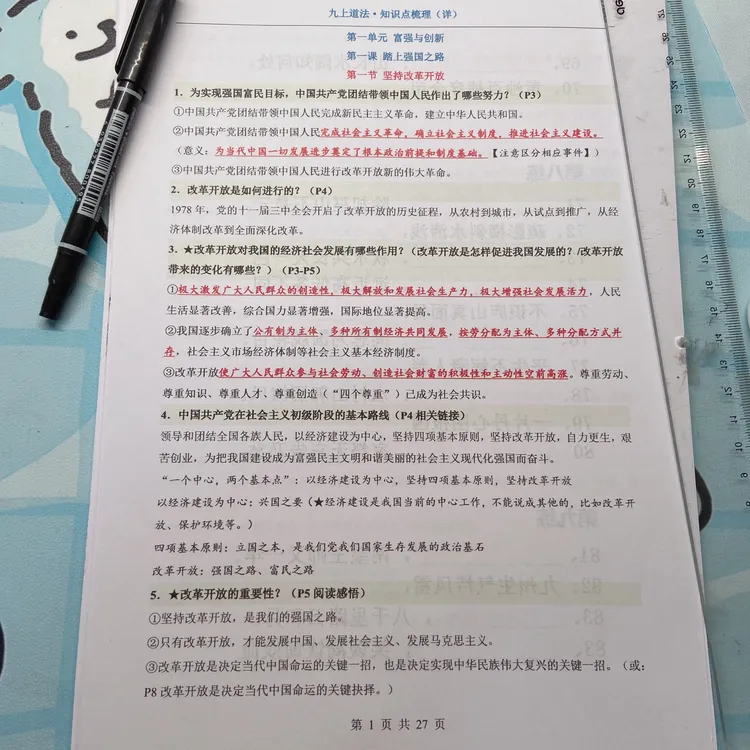 九上道法·知识点梳理（详）
第一单元 富强与创新
第一课 踏上强国之路
第一节 坚持改革开放
1．为实现强国富民目标，中国共产党团结带领中国人民作出了哪些努力？（P3）
①中国共产党团结带领中国人民完成新民主主义革命，建立中华人民共和国。
②中国共产党团结带领中国人民完成社会主义革命，确立社会主义制度，推进社会主义建设。
（意义：为当代中国一切发展进步奠定了根本政治前提和制度基础。【注意区分相应事件】）
③中国共产党团结带领中国人民进行改革开放新的伟大革命。
2．改革开放是如何进行的？（P4）
1978 年，党的十一届三中全会开启了改革开放的历史征程，从农村到城市，从试点到推广，从经
济体制改革到全面深化改革。
3．★改革开放对我国的经济社会发展有哪些作用？（改革开放是怎样促进我国发展的？/改革开放
带来的变化有哪些？）（P3-P5）
①极大激发广大人民群众的创造性，极大解放和发展社会生产力，极大增强社会发展活力，人民
生活显著改善，综合国力显著增强，国际地位显著提高。
②我国逐步确立了公有制为主体、多种所有制经济共同发展，按劳分配为主体、多种分配方式并
存，社会主义市场经济体制等社会主义基本经济制度。
③改革开放使广大人民群众参与社会劳动、创造社会财富的积极性和主动性空前高涨。尊重劳动、
尊重知识、尊重人才、尊重创造（“四个尊重”）已成为社会共识。
4．中国共产党在社会主义初级阶段的基本路线（P4 相关链接）
领导和团结全国各族人民，以经济建设为中心，坚持四项基本原则，坚持改革开放，自力更生，艰
苦创业，为把我国建设成为富强民主文明和谐美丽的社会主义现代化强国而奋斗。
“一个中心，两个基本点”：以经济建设为中心，坚持四项基本原则，坚持改革开放
以经济建设为中心：兴国之要（★经济建设是我国当前的中心工作，不能说成其他的，比如改革开
放、保护环境等。）
四项基本原则：立国之本，是我们党我们国家生存发展的政治基石
改革开放：强国之路、富民之路
5．★改革开放的重要性？（P5 阅读感悟）
①坚持改革开放，是我们的强国之路。
②只有改革开放，才能发展中国、发展社会主义、发展马克思主义。
③改革开放是决定当代中国命运的关键一招，也是决定实现中华民族伟大复兴的关键一招。（或：
P8 改革开放是决定当代中国命运的关键抉择。）
第 1 页 共 27 页